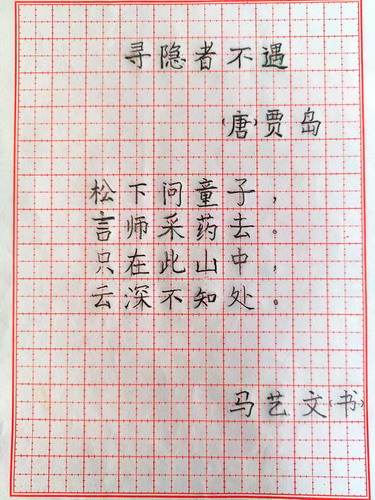 寻隐者不遇
(唐)贾岛
松下问童子，
言师采药去。
只在此山中，
云深不知处。
马艺文(书)